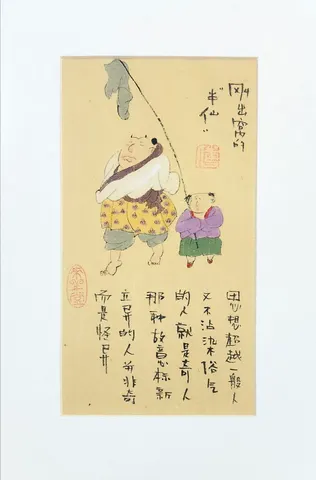 刚出窝的
“半仙”
思想超越一般人
又不沾染俗气
的人就是奇人
那种故意标新
立异的人并非奇
而是怪异